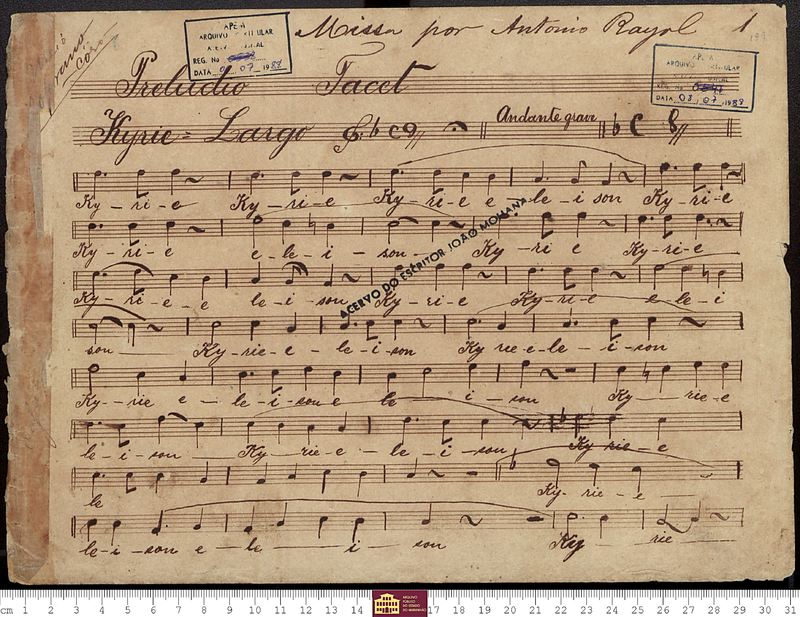 Missa por Antonio Rayol 1
APEM
ARQUIVO
REG. No
DATA 07 1988
ARQUIVO
DATA 03 07 1988
Preludio Tacet
Kyrie = Largo Andante grave
Ky - ri - e Ky - ri - e Ky - ri - e e le - i son Ky - ri - e
Ky - ri - e e - le - i - son - Ky - ri e Ky - ri - e
ACERVO DO ESCRITOR JOÃO MOHANA
Ky - ri - e - e le - i - son Ky - ri - e Ky - ri - e e - le - i
son Ky - rie - e - le - i - son Ky rie e - le - i - son
Ky - rie e - le - i - son e le i - son Ky - rie - e
le - i - son Ky - rie - e - le - i - son Ky rie - e
le Ky - rie - e
le - i - son e - le i son Ky rie
cm 1 2 3 4 5 6 7 8 9 10 11 12 13 14 ARQUIVO PÚBLICO DO ESTADO DO MARANHÃO 17 18 19 20 21 22 23 24 25 26 27 28 29 30 31